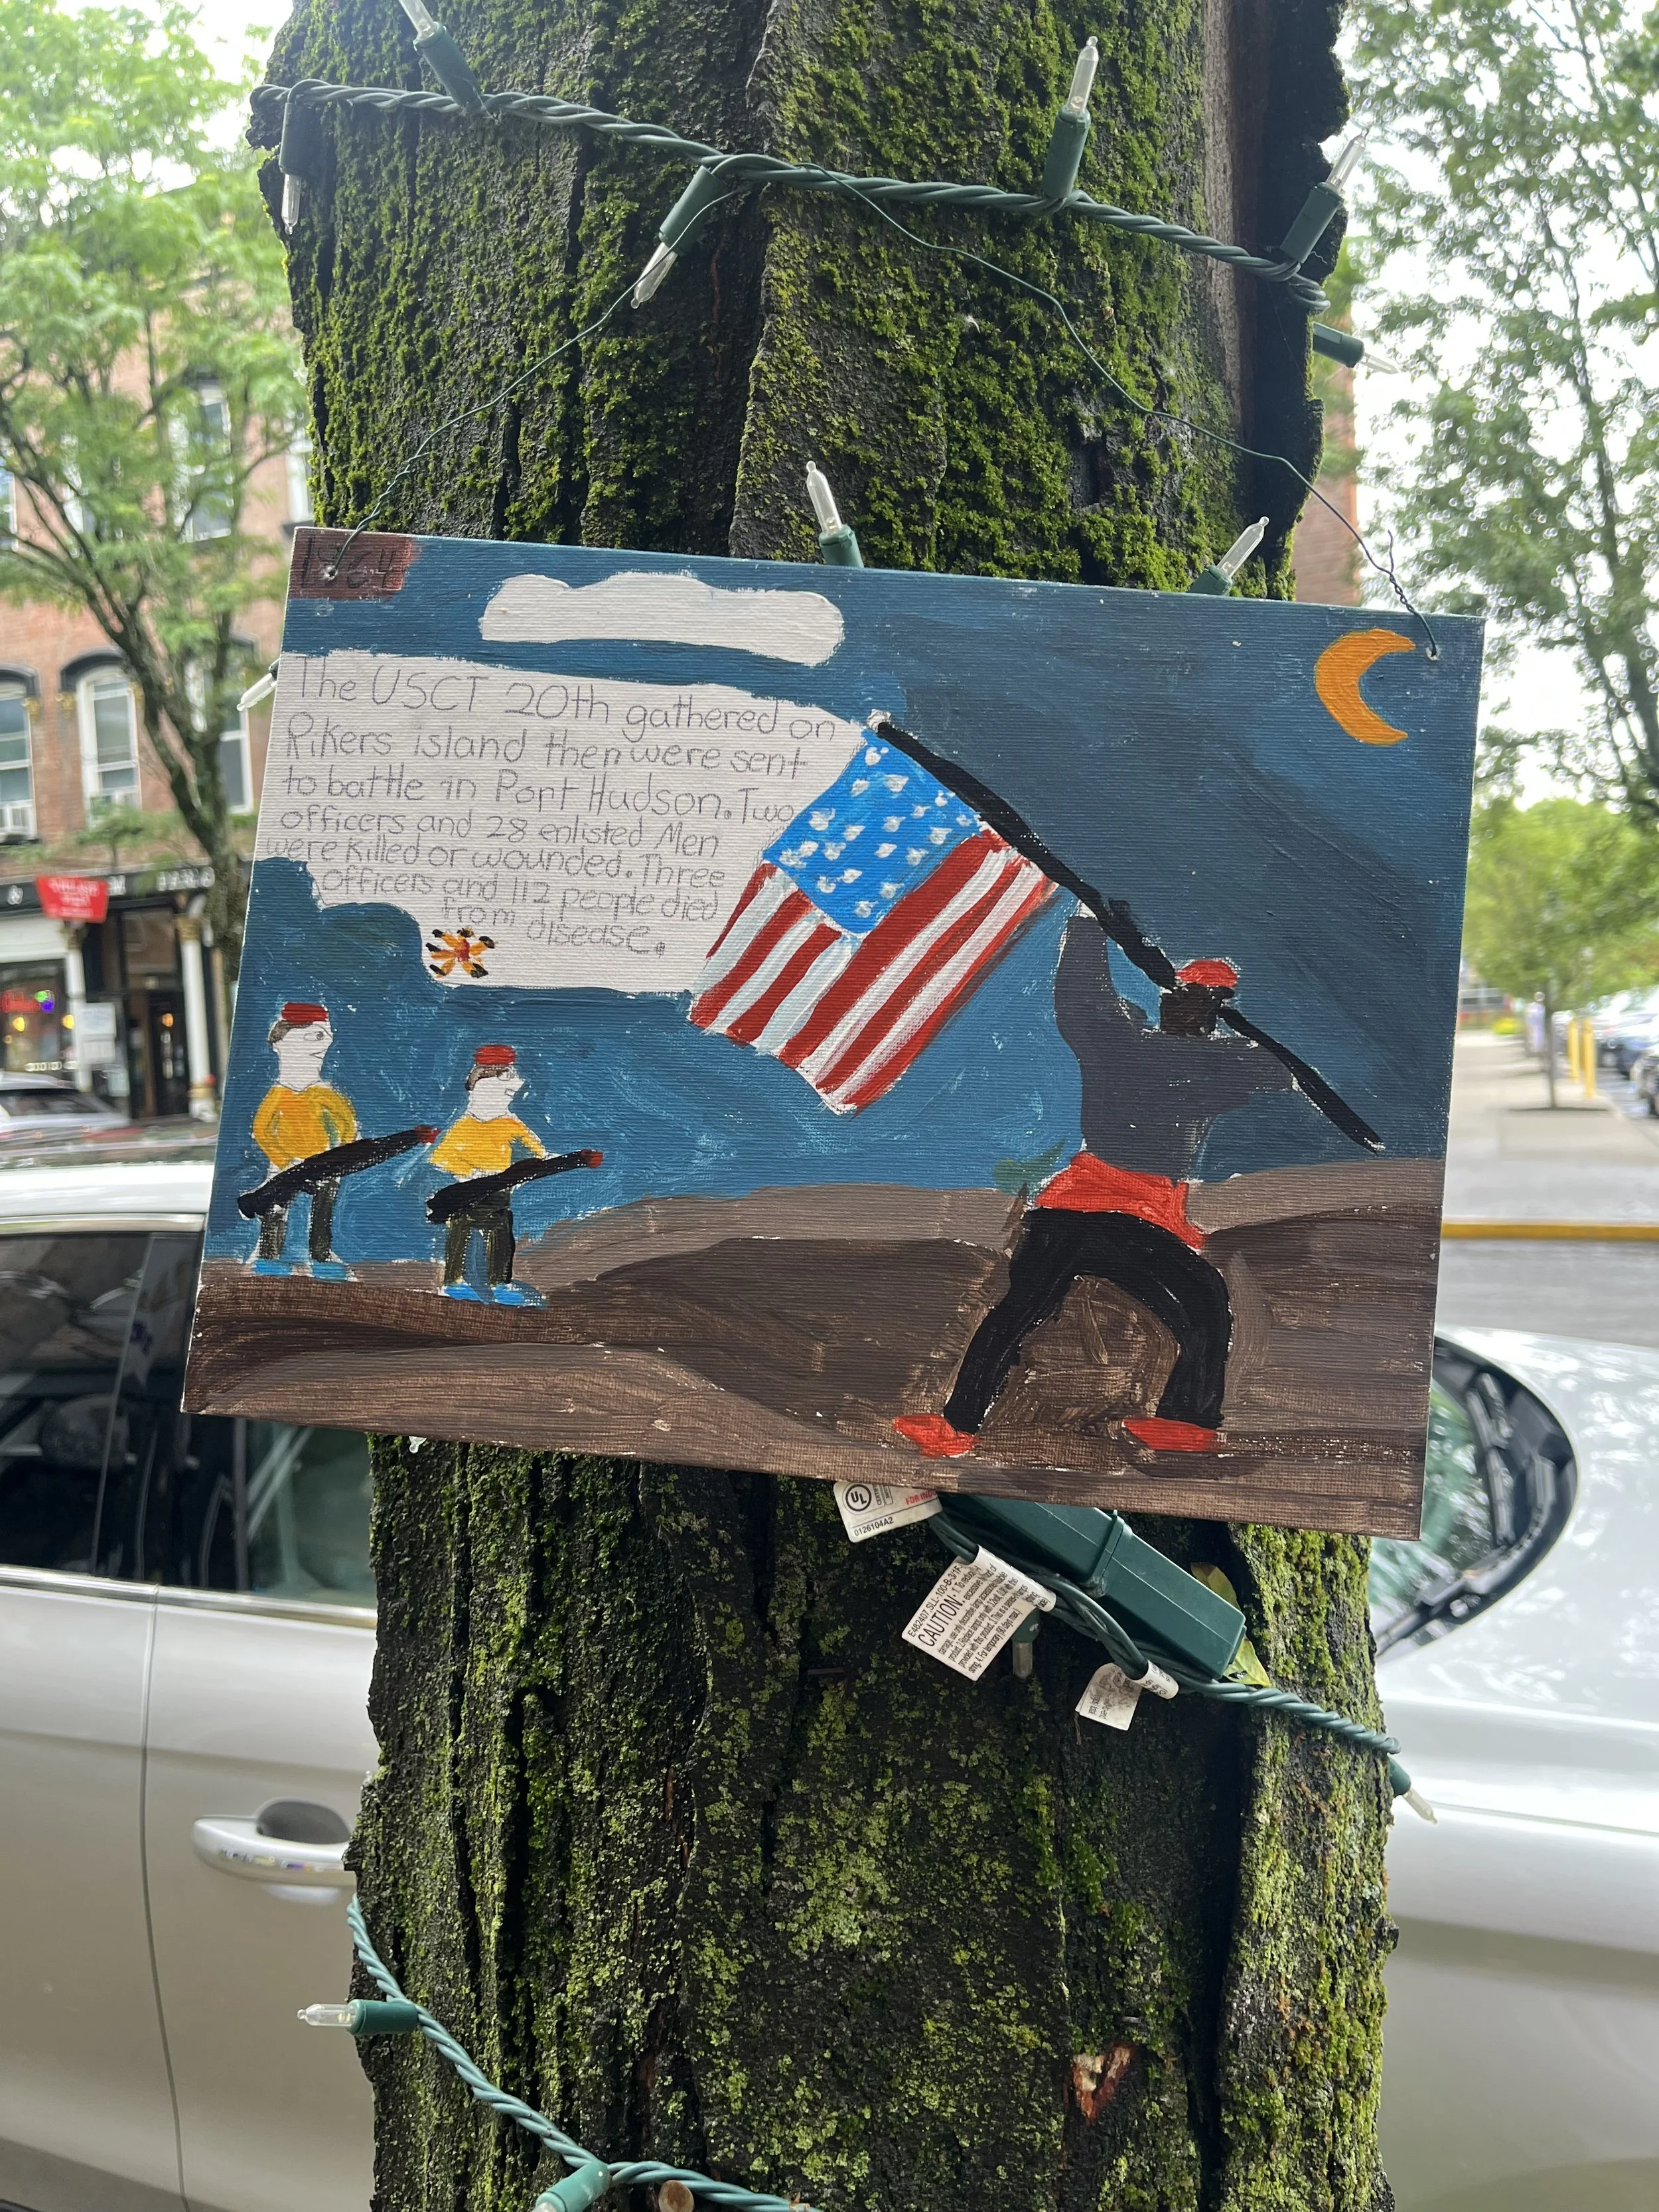 1864
The USCT 20th gathered on
Rikers island then were sent
to battle in Port Hudson. Two
officers and 28 enlisted Men
were killed or wounded. Three
officers and 112 people died
from disease.
UL
FOR IND
0126104A2
E482407 SLL-100-B-3/1F
CAUTION: